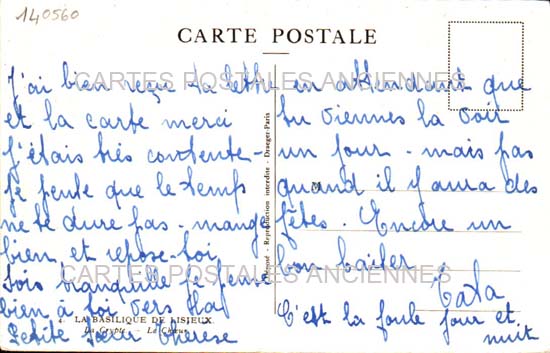 140560
CARTE POSTALE
J'ai bien reçu ta lettre
et la carte merci
j'étais très contente -
je pense que le temps
ne te dure pas - mange
bien et repose-toi
sois tranquille je pense
bien à toi vers sta
Petite sœur Thérèse
en attendant que
tu viennes la voir
un jour - mais pas
quand il y aura des
fêtes. Encore un
bon baiser
Tata
C'est la foule jour et
nuit
CARTES POSTALES ANCIENNES
CARTES POSTALES ANCIENNES
LA BASILIQUE DE LISIEUX
La Crypte - Le Chœur
Reproduction interdite - Draeger-Paris